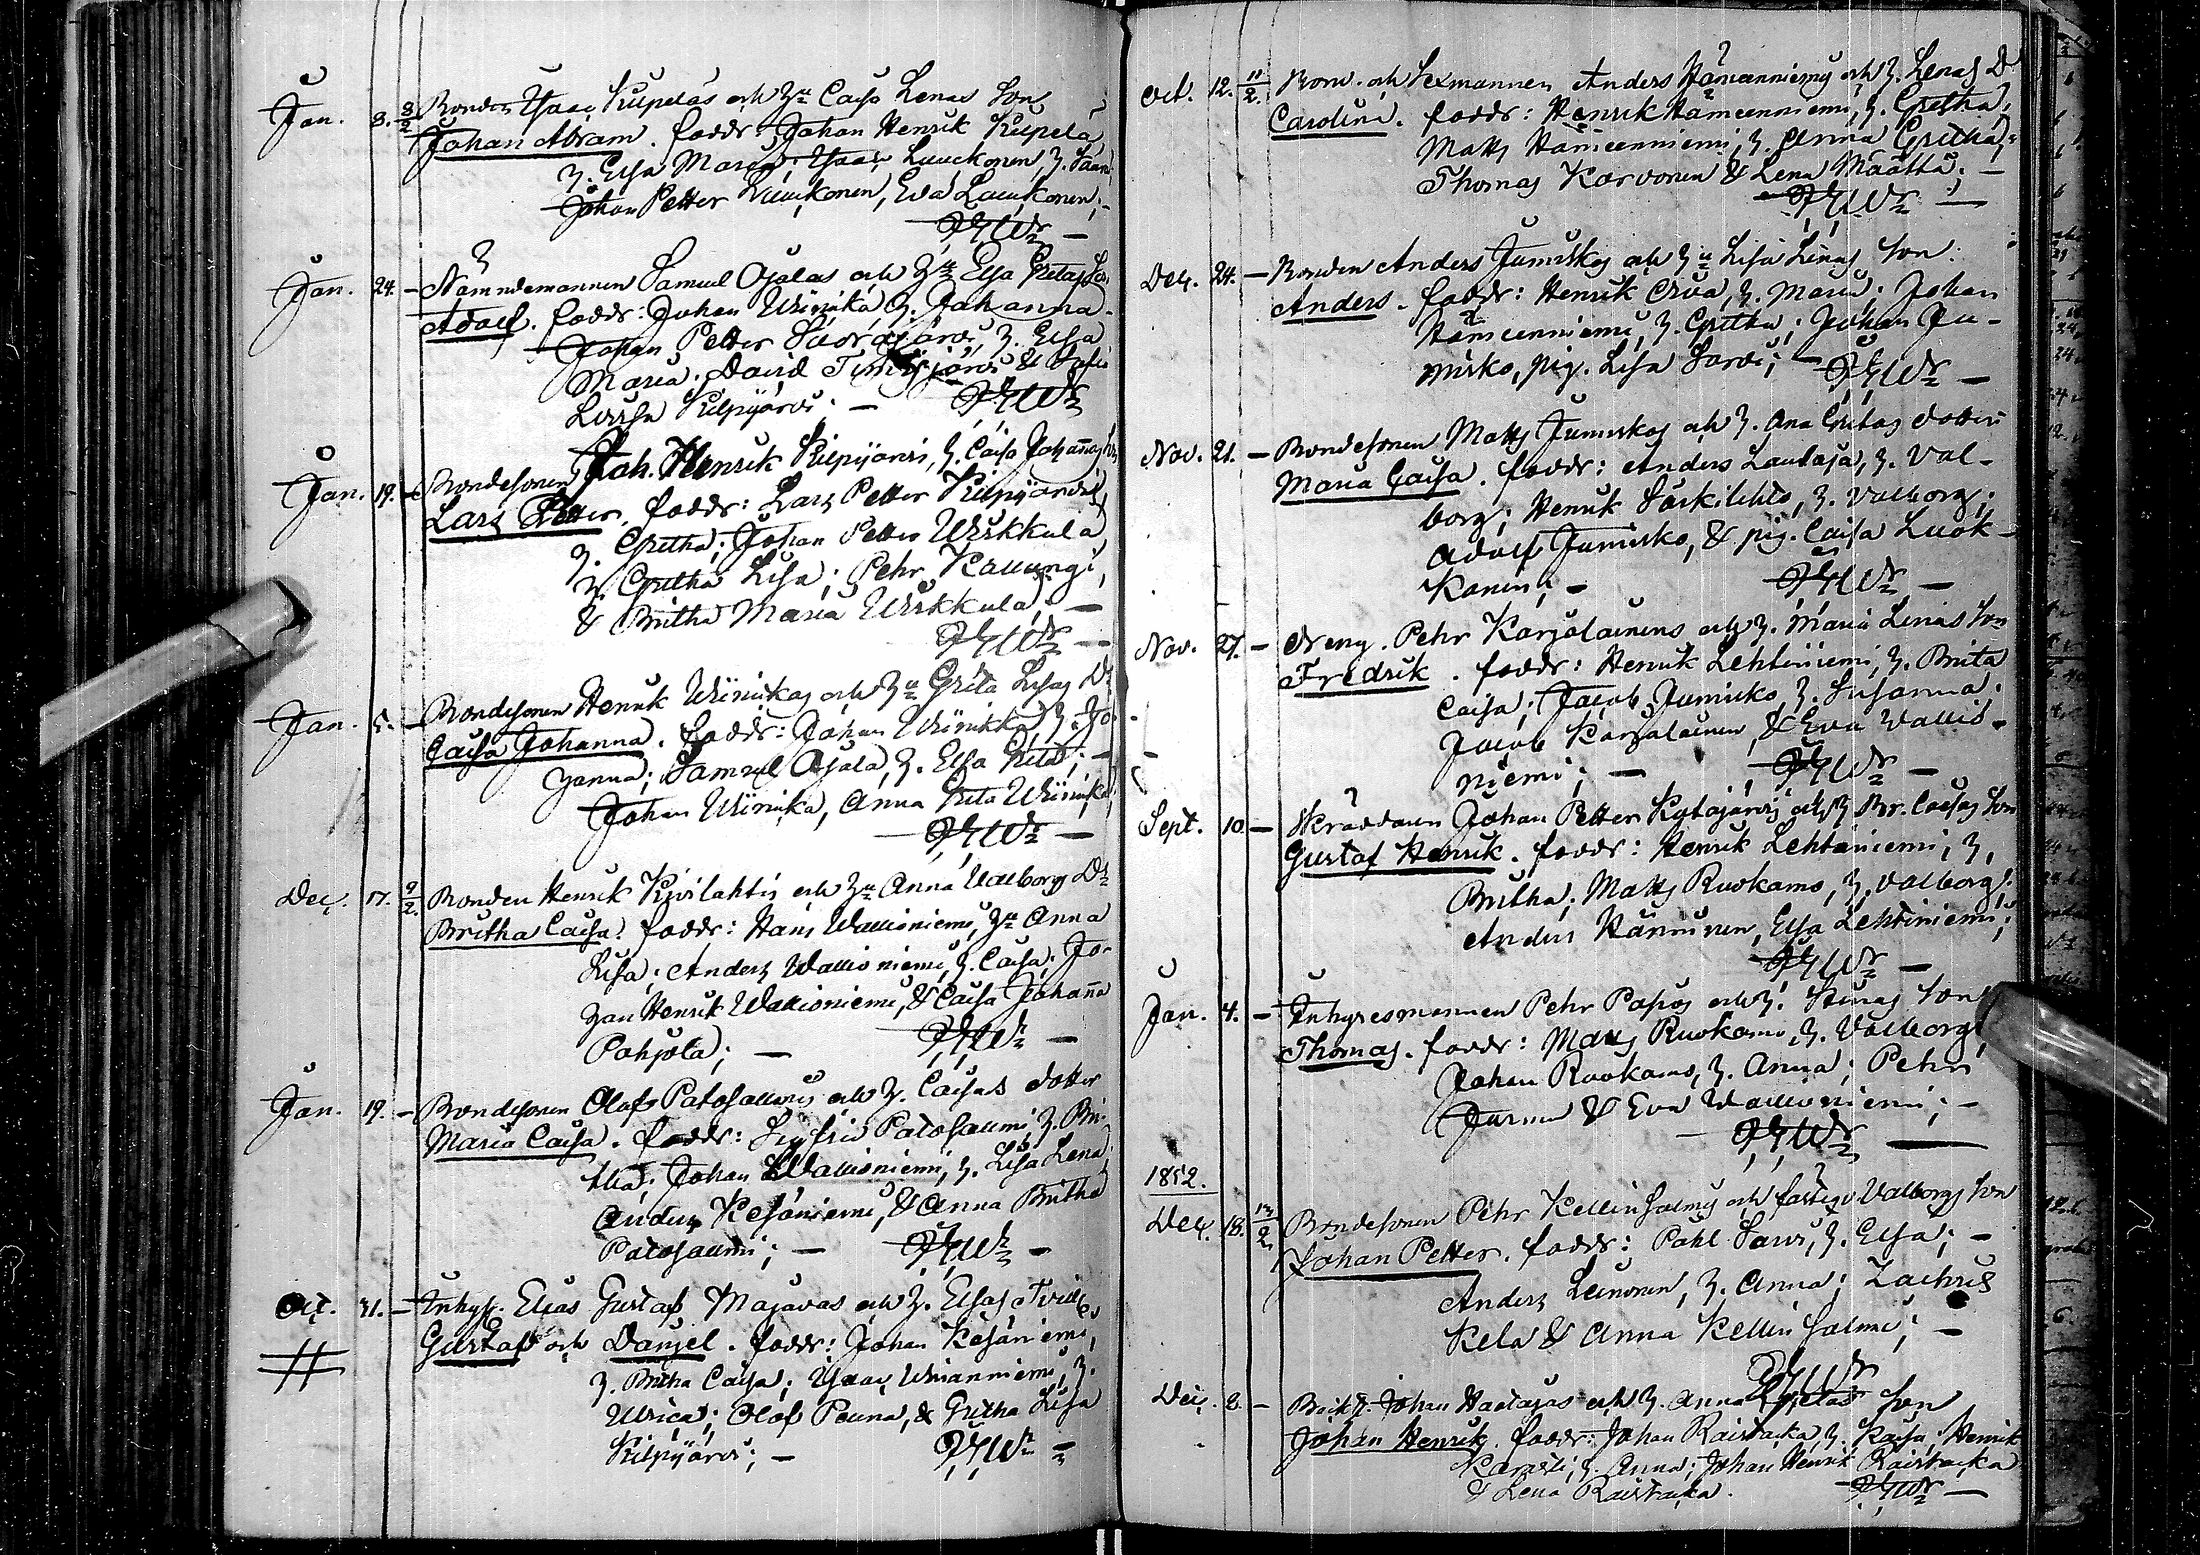 Jan. 8. 8/2 Bonden Isaac Kilpeläs och H:u Caisa Lenas Son
Johan Abram. faddr: Johan Henrik Kilpelä,
h. Elsa Maria; Isaac Luuckonen, h.
Johan Petter Luuckonen, Eva Luuckonen; –
Jan. 24. – Nämndemannen Samuel Ojalas och H:u Elsa Gretas Son
Adolf. faddr: Johan Wiinikka h. Johanna.
Johan Petter h. Elsa
Maria; David &
Kilpijärvi; –
Jan. 19. – Bondesonen Joh. Henrik Kilpijärvis, h. Caisa Johannas Son
Lars Petter. faddr: Lars Petter Kilpijärvi,
h. Gretha; Johan Petter Wirkkula,
h. Gretha Lisa; Pehr Kallungi,
& Britha Maria Wirkkula; –
Jan. 5. – Bondesonen Henrik Wiinikkas och H:u Greta Lisas Dr
Caisa Johanna. faddr: Johan Wiinikka, h. Jo-
hanna; Samuel Ojala, h. Elsa Greta; –
Johan Wiinikka, Anna Greta Wiinikka;
Dec. 17. 9/2. Bonden Henrik Kivilahtis och H:u Anna Valborgs Dr
Britha Caisa. faddr: Hans Wallioniemi, H:u Anna
Lisa; Anders Wallioniemi, h. Caisa; Jo-
han Henrik Wallioniemi, & Caisa Johanna
Pohjola; –
Jan. 19. – Bondesonen Olof Patosalmis och h. Caisas dotter
Maria Caisa. faddr: Sigfrid Patosalmi, h. Bri-
tha; Johan Wallioniemi, h. Lisa Lena;
Anders Kesäniemi, & Anna Britha
Patosalmi; –
Oct. 31. – Inhys. Elias Gustaf Majavas och h. Elsas Tvill.
Gustaf och Daniel. faddr: Johan Kesäniemi,
h. Britha Caisa; Isaac h.
Ulrica; Olof Peuna, & Gretha Lisa
Kilpijärvi; –
Oct. 12. 11/2. Bond. och Sexmannen Anders Hämeenniemis och h. Lenas D
Carolina. faddr: Henrik Hämeenniemi, h. Gretha;
Matts Hämeenniemi, h. Anna Gretha;
Thomas Karvonen & Lena Määttä; –
Dec. 24. – Bonden Anders Jumiskos och H:u Lisa Lenas Son.
Anders. faddr: Henrik Orva, h. Maria; Johan
Hämeenniemi, h. Gretha; Johan Ju-
misko, pig. Lisa Sarvi; –
Nov. 21. – Bondesonen Matts Jumiskos och h. Ana Gretas dotter
Maria Caisa. faddr: Anders Lantaja, h. Val-
borg; Henrik Särkilehto, h. Valborg;
Adolf Jumisko, & pig. Caisa Luok-
kanen; –
Nov. 27. – Dreng. Pehr Karjalainens och h. Maria Lenas Son
Fredrik. faddr: Henrik Lehtiniemi, h. Brita
Caisa; Jacob Jumisko, h. Susanna.
Jacob Karjalainen, & Eva Wallio-
niemi; –
Sept. 10. – Skräddaren Johan Petter Kytäjärvis och h. Br. Caisas Son
Gustaf Henrik. faddr: Henrik Lehtiniemi, h.
Britha; Matts Ruokamo, h. Valborg;
Anders Hänninen, Elsa Lehtiniemi;
Jan. 4. – Inhyresmannen Pehr Papos och h. Stinas Son
Thomas. faddr: Matts Ruokamo, h. Valborg;
Johan Ruokamo, h. Anna; Pehr
Jurmu & Eva Wallioniemi; –
1852.
Dec. 18. 13/2 Bondesonen Pehr Kellinsalmis och Valborgs Son
Johan Petter. faddr: Påhl Sarvi, h. Elsa; –
Anders Leinonen, h. Anna; Zachris
Kela & Anna Kellinsalmi; –
Dec. 2. – Johan Hartajas och h. Anna Gretas Son
Johan Henrik. faddr: Johan Raistacka, h. Kaisa; Henrik
h. Anna; Johan Henrik Raistacka
& Lena Raistacka.